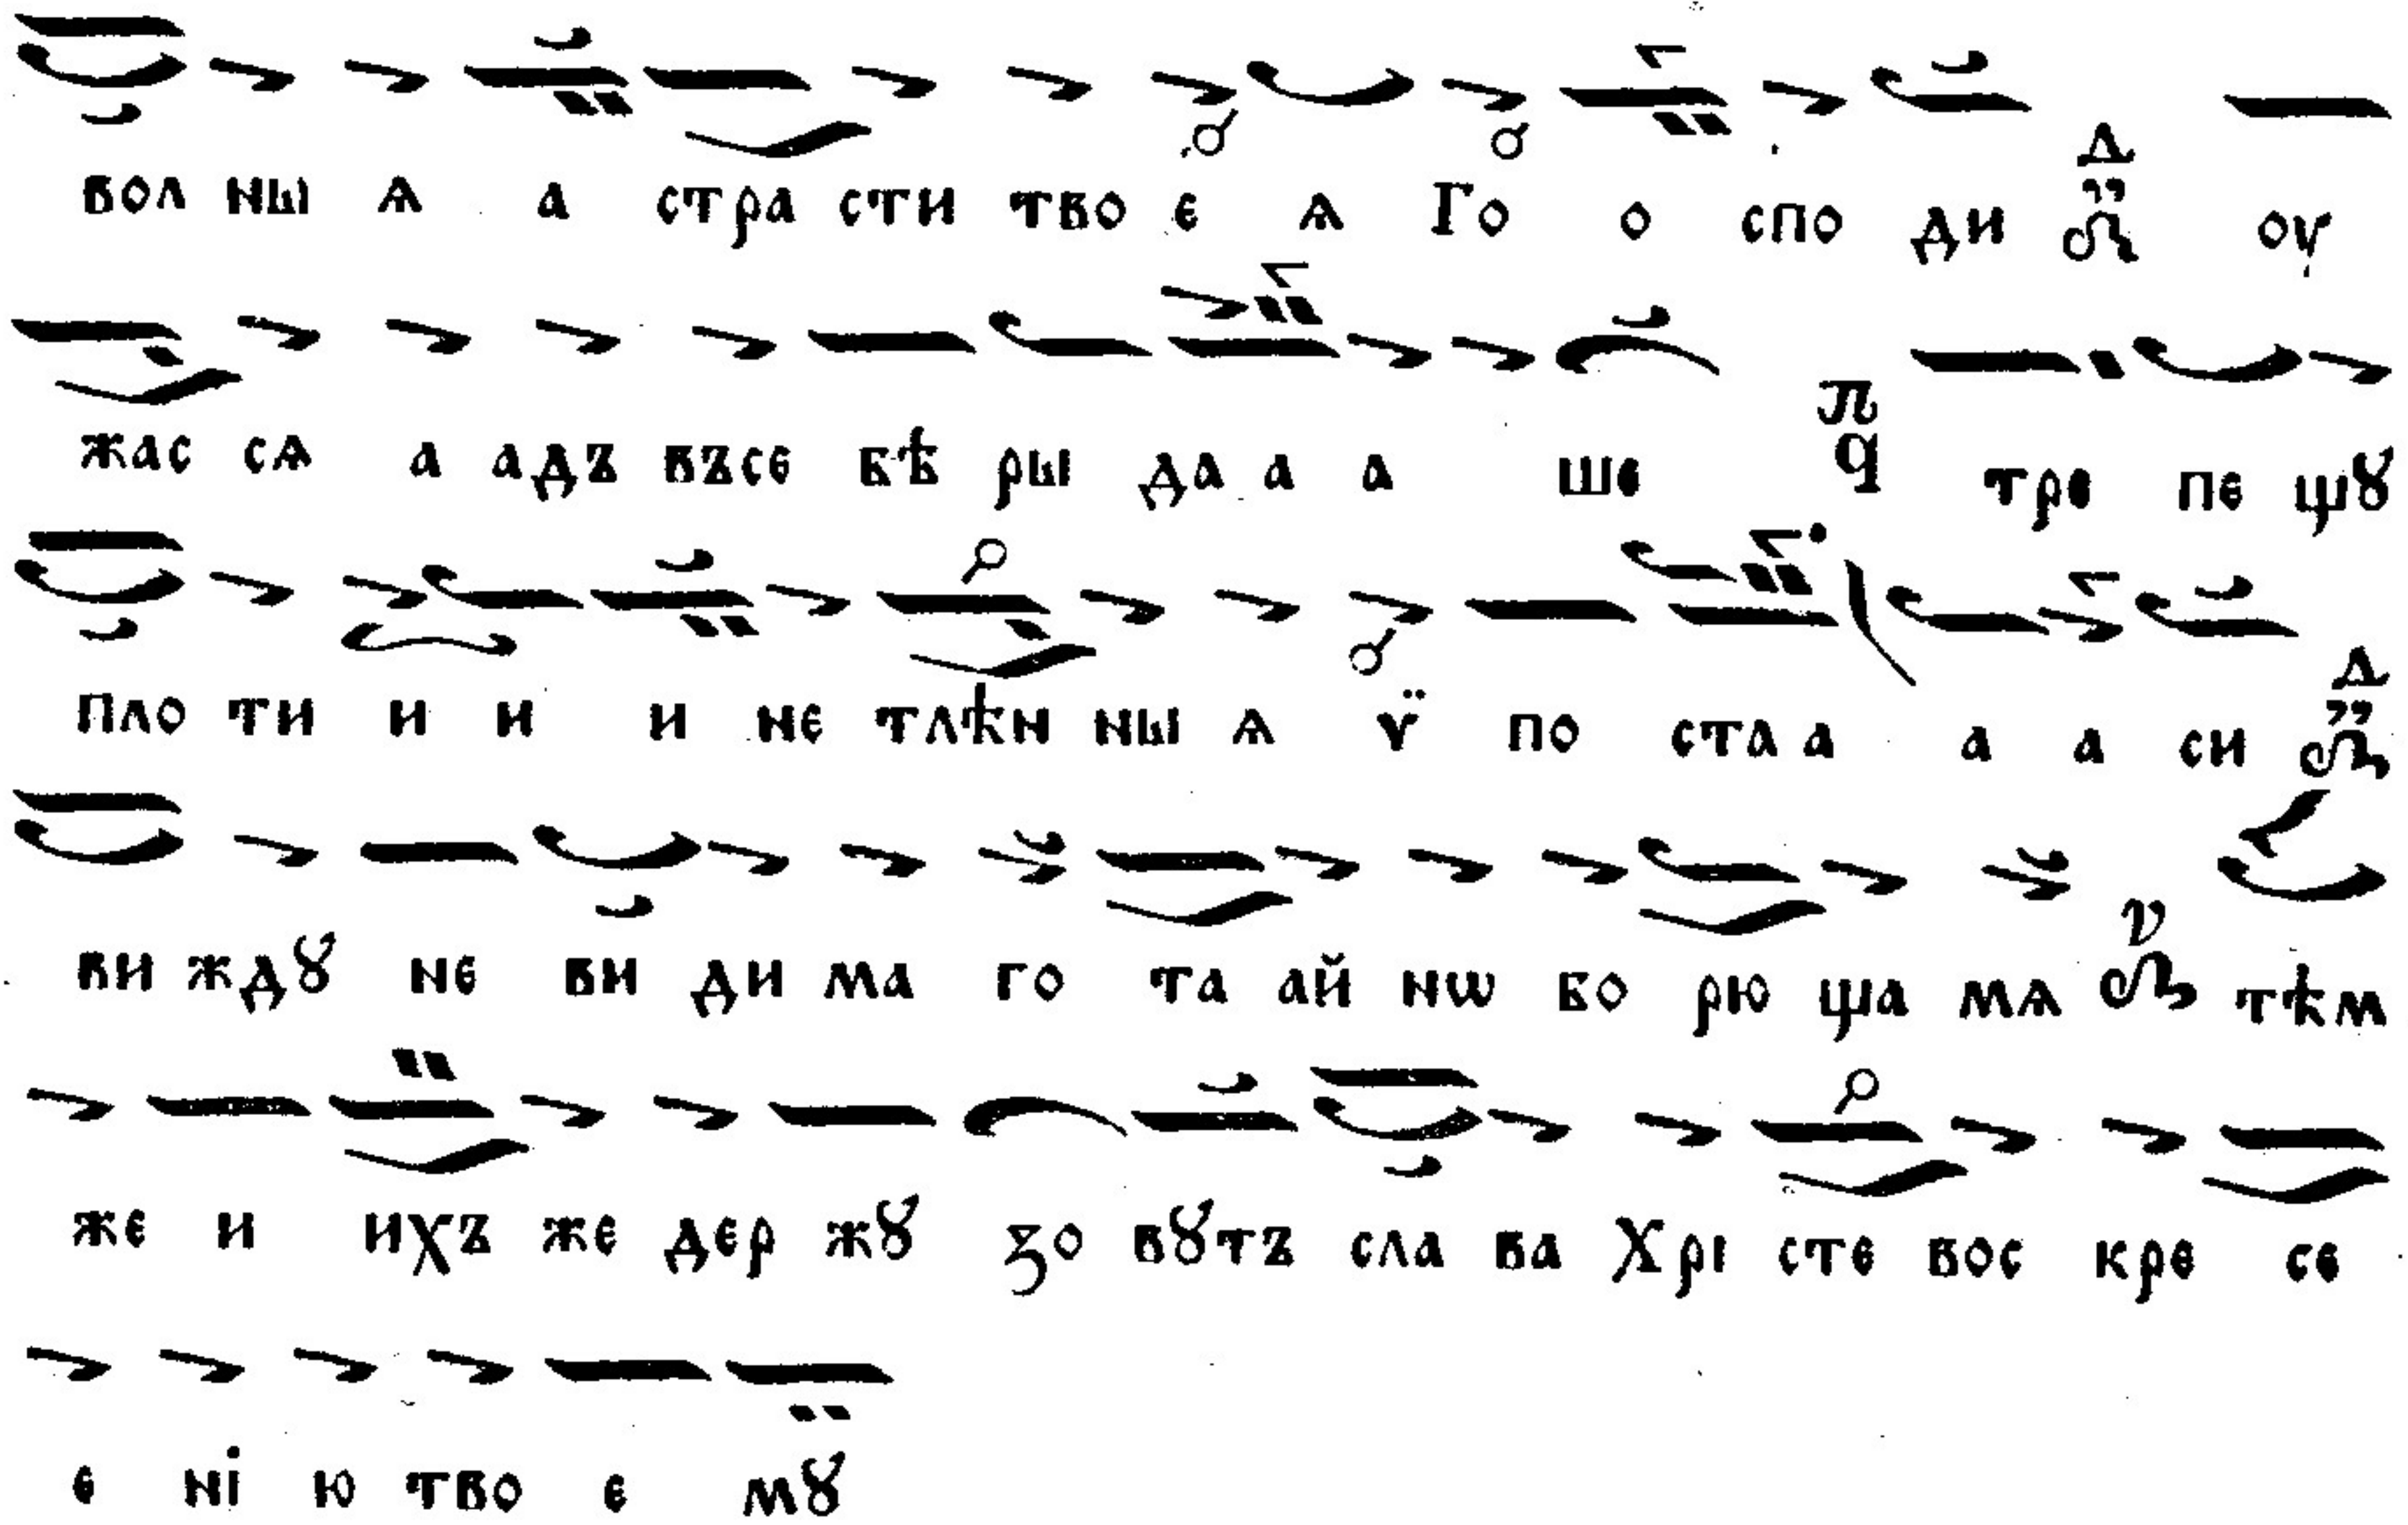 вол ны ѧ а стра сти тво є ѧ Го о спо ди Δ оу
жас сѧ а адъ въсе бѣ ры да а а ше π q тре пе щꙋ
пло ти и и и не тлѣн ны ѧ ѵ̈ по ста а а а си Δ
ви ждꙋ не ви ди ма го та ай нѡ бо рю ща мѧ ν тѣм
же и ихъ же дер жꙋ зо вꙋтъ сла ва Хрі сте вос кре се
е ні ю тво е мꙋ